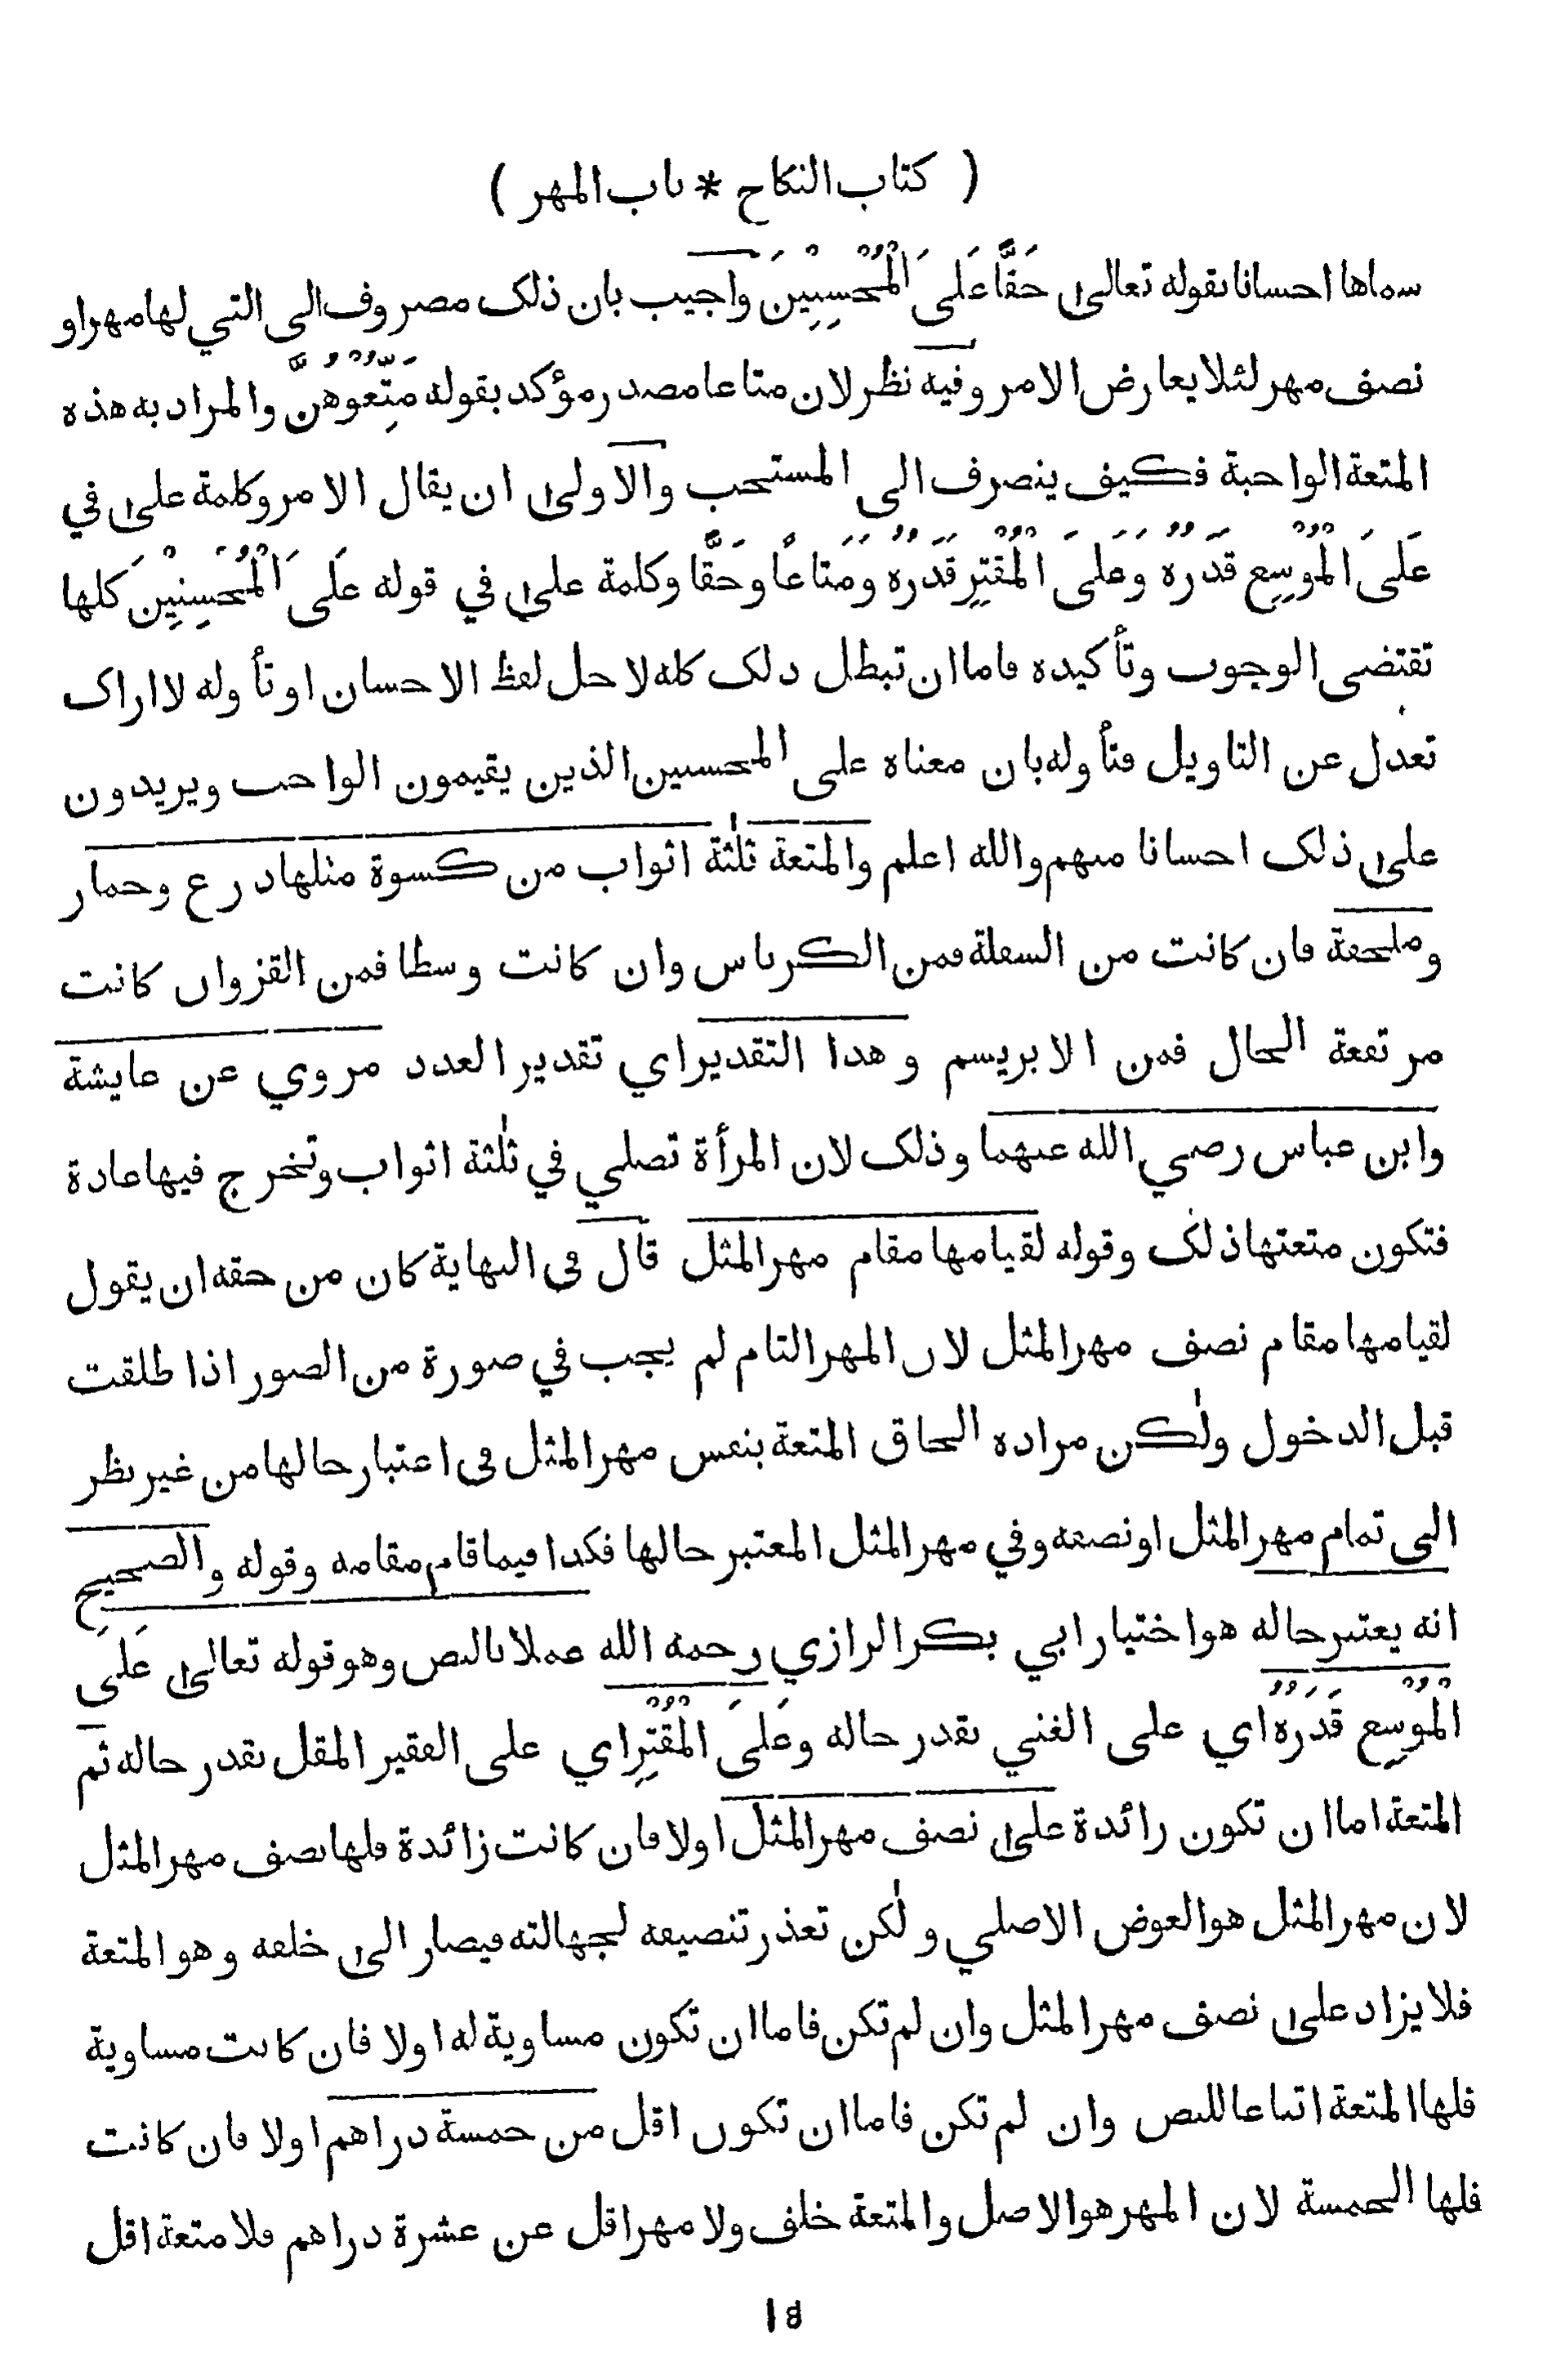 ( كتاب النكاح * باب المهر )
سماها احسانا بقوله تعالى حَقًّا عَلَى الْمُحْسِنِيْنَ واجيب بان ذلك مصروف الى التي لها مهر او
نصف مهر لئلا يعارض الامر وفيه نظر لان متاعا مصدر مؤكد بقوله مَتِّعُوْهُنَّ والمراد به هذه
المتعة الواجبة فكيف ينصرف الى المستحب والاولى ان يقال الامر وكلمة على في
عَلَى الْمُوْسِعِ قَدَرُهُ وَعَلَى الْمُقْتِرِ قَدَرُهُ وَمَتَاعًا وحَقًّا وكلمة على في قوله عَلَى الْمُحْسِنِيْنَ كلها
تقتضي الوجوب وتأكيده فاما ان تبطل ذلك كله لاجل لفظ الاحسان او تأوله لا اراك
تعدل عن التاويل فتأوله بان معناه على المحسنين الذين يقيمون الواجب ويريدون
على ذلك احسانا منهم والله اعلم والمتعة ثلٰثة اثواب من كسوة مثلها درع وخمار
وملحفة فان كانت من السفلة فمن الكرباس وان كانت وسطا فمن القز وان كانت
مرتفعة الحال فمن الابريسم وهذا التقدير اي تقدير العدد مروي عن عايشة
وابن عباس رضي الله عنهما وذلك لان المرأة تصلي في ثلٰثة اثواب وتخرج فيها عادة
فتكون متعتها ذلك وقوله لقيامها مقام مهر المثل قال في النهاية كان من حقه ان يقول
لقيامها مقام نصف مهر المثل لان المهر التام لم يجب في صورة من الصور اذا طلقت
قبل الدخول ولٰكن مراده الحاق المتعة بنفس مهر المثل في اعتبار حالها من غير نظر
الى تمام مهر المثل او نصفه وفي مهر المثل المعتبر حالها فكذا فيما قام مقامه وقوله والصحيح
انه يعتبر حاله هو اختيار ابي بكر الرازي رحمه الله عملا بالنص وهو قوله تعالى عَلَى
الْمُوْسِعِ قَدَرُهُ اي على الغني بقدر حاله وعَلَى الْمُقْتِرِ اي على الفقير المقل بقدر حاله ثم
المتعة اما ان تكون زائدة على نصف مهر المثل اولا فان كانت زائدة فلها نصف مهر المثل
لان مهر المثل هو العوض الاصلي ولٰكن تعذر تنصيفه لجهالته فيصار الى خلفه وهو المتعة
فلا يزاد على نصف مهر المثل وان لم تكن فاما ان تكون مساوية له اولا فان كانت مساوية
فلها المتعة اتباعا للنص وان لم تكن فاما ان تكون اقل من خمسة دراهم اولا فان كانت
فلها الخمسة لان المهر هو الاصل والمتعة خلف ولا مهر اقل عن عشرة دراهم فلا متعة اقل